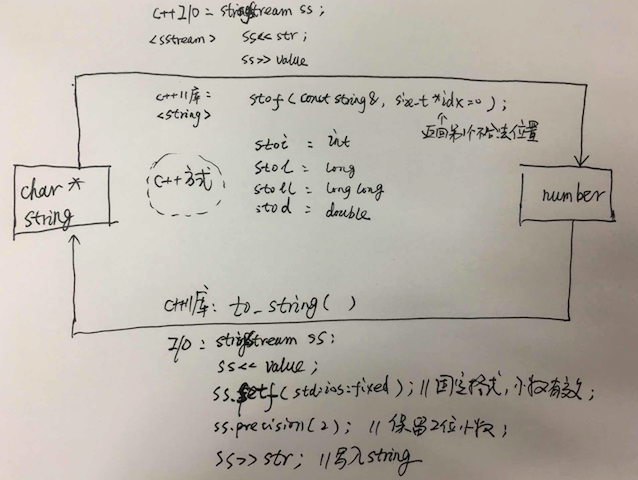 C++ I/O: stringstream ss;
<sstream> ss<<str;
ss>> value
C++11库: stof(const string&, size_t *idx=0);
<string>
返回第1个不合法位置
stoi = int
stol = long
stoll = long long
stod = double
C++方式
char *
string
number
C++11库: to_string( )
I/O: stringstream ss;
ss<< value;
ss.setf(std:ios:fixed); // 固定格式,小数有效;
ss.precision(2); // 保留2位小数;
ss>> str; //写入string